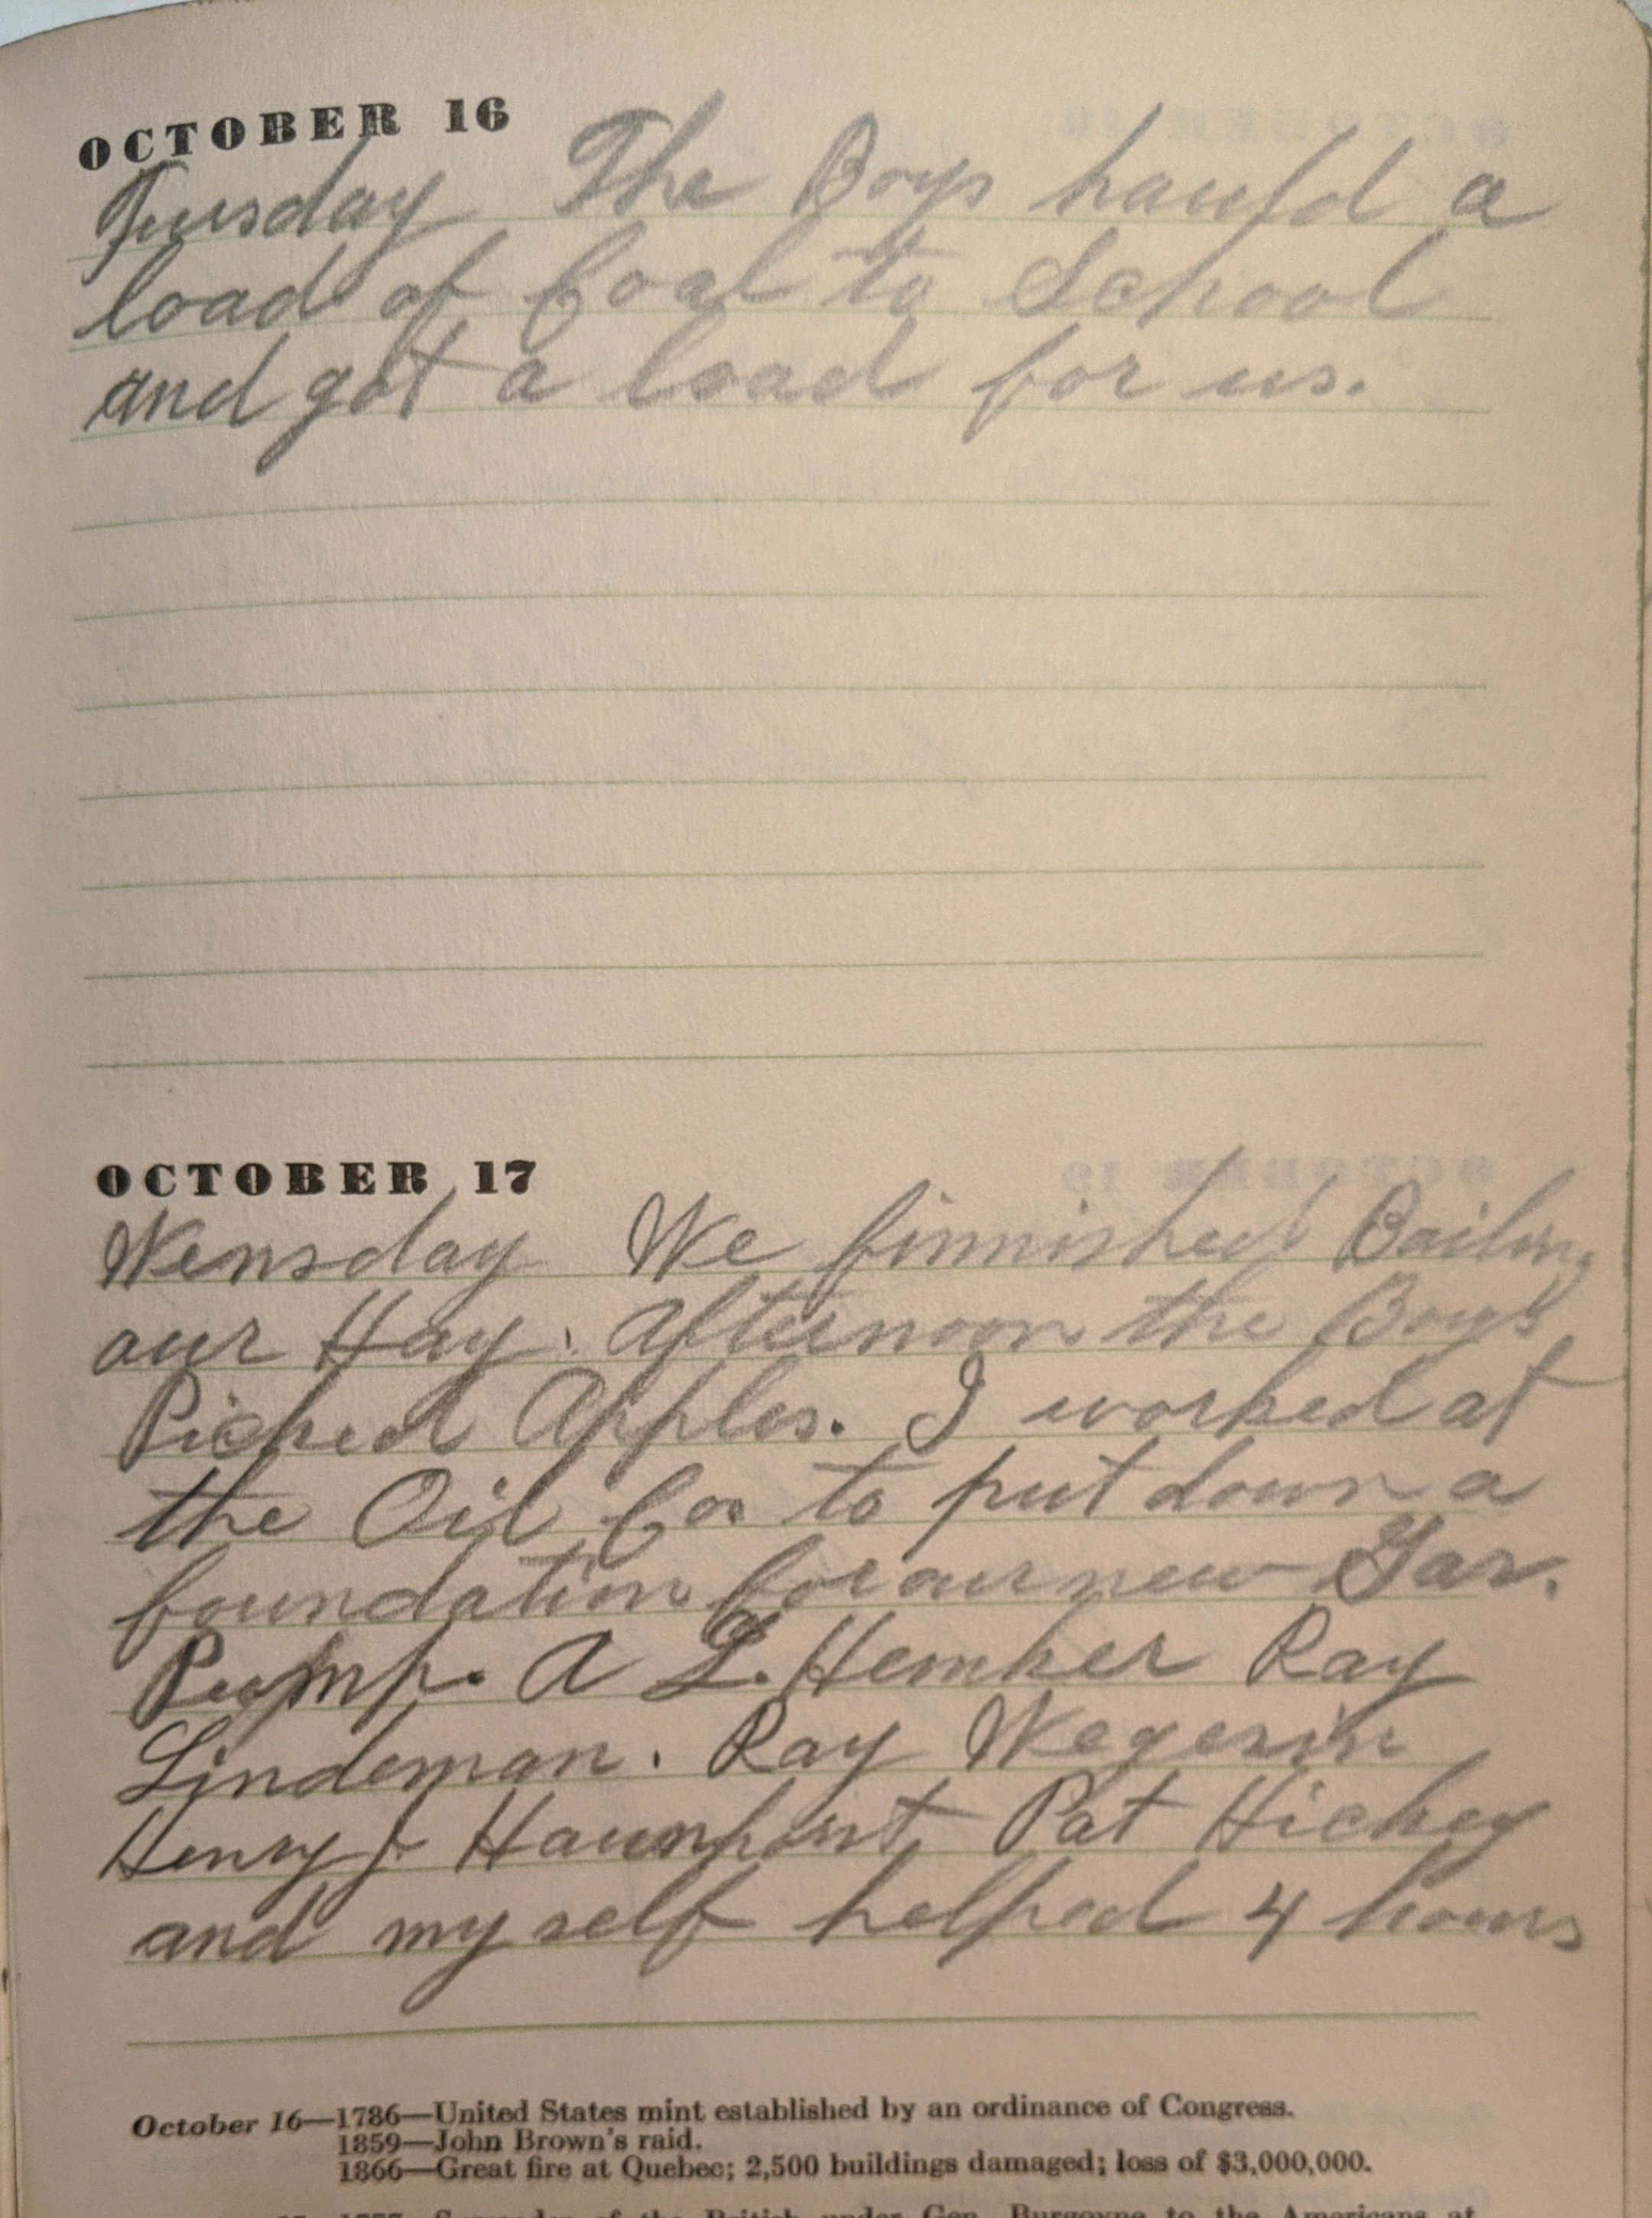 OCTOBER 16
Tuesday The Boys hauld a
load of Coal to School
and got a load for us.
OCTOBER 17
Wensday We finnished Bailing
our Hay. Afternoon the Boys
Picked Apples. I worked at
the Oil Co. to put down a
foundation for our new Gas.
Pump. A L. Hemker Ray
Lindeman. Ray Wegesin
Henry J Haunhorst Pat Hickey
and my self helped 4 hours
October 16—1786—United States mint established by an ordinance of Congress.
1859—John Brown's raid.
1866—Great fire at Quebec; 2,500 buildings damaged; loss of $3,000,000.
1777—Surrender of the British under Gen. Burgoyne to the Americans at